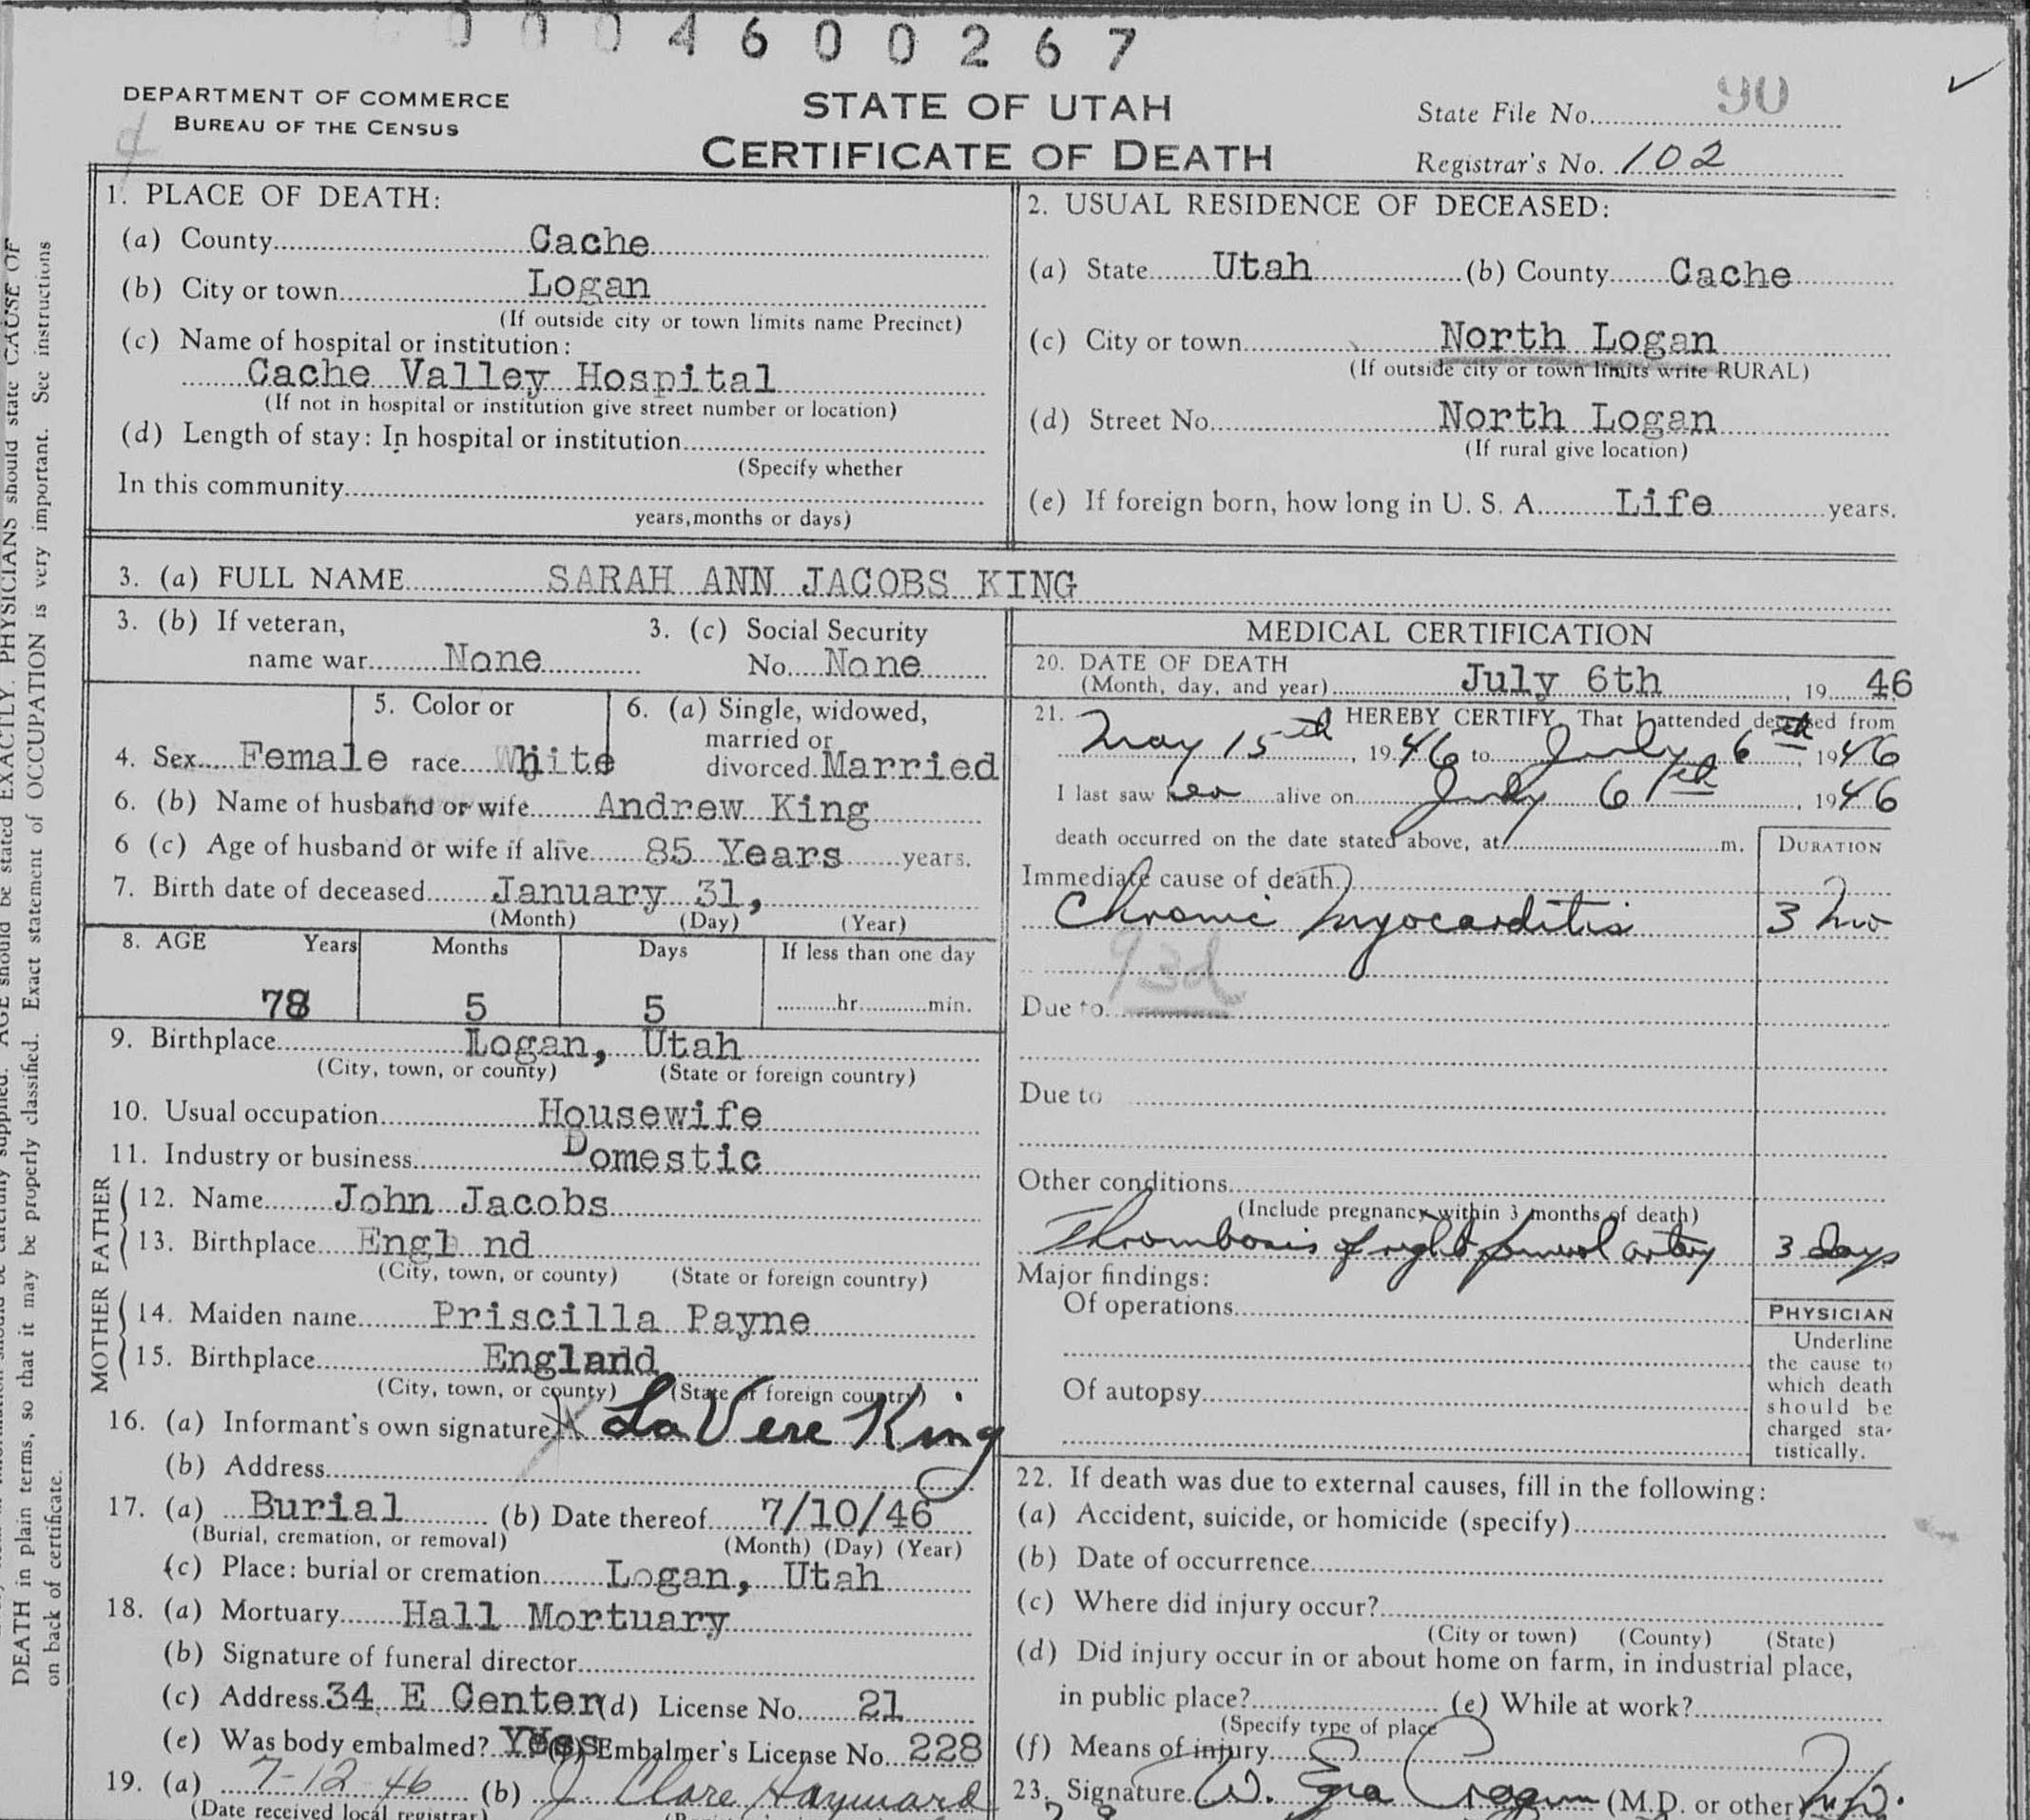 0004600267
DEPARTMENT OF COMMERCE
BUREAU OF THE CENSUS
STATE OF UTAH
CERTIFICATE OF DEATH
State File No. 90
Registrar's No. 102
1. PLACE OF DEATH:
(a) County Cache
(b) City or town Logan
(If outside city or town limits name Precinct)
(c) Name of hospital or institution:
Cache Valley Hospital
(If not in hospital or institution give street number or location)
(d) Length of stay: In hospital or institution
(Specify whether
In this community
years, months or days)
2. USUAL RESIDENCE OF DECEASED:
(a) State Utah (b) County Cache
(c) City or town North Logan
(If outside city or town limits write RURAL)
(d) Street No. North Logan
(If rural give location)
(e) If foreign born, how long in U. S. A. Life years.
3. (a) FULL NAME SARAH ANN JACOBS KING
3. (b) If veteran,
name war None
3. (c) Social Security
No. None
4. Sex Female
5. Color or
race White
6. (a) Single, widowed,
married or
divorced Married
6. (b) Name of husband or wife Andrew King
6 (c) Age of husband or wife if alive 85 Years years.
7. Birth date of deceased January 31,
(Month) (Day) (Year)
8. AGE Years Months Days If less than one day
78 5 5 hr. min.
9. Birthplace Logan, Utah
(City, town, or county) (State or foreign country)
10. Usual occupation Housewife
11. Industry or business Domestic
FATHER
12. Name John Jacobs
13. Birthplace Engl nd
(City, town, or county) (State or foreign country)
MOTHER
14. Maiden name Priscilla Payne
15. Birthplace England
(City, town, or county) (State or foreign country)
16. (a) Informant's own signature X LaVere King
(b) Address
17. (a) Burial (b) Date thereof 7/10/46
(Burial, cremation, or removal) (Month) (Day) (Year)
(c) Place: burial or cremation Logan, Utah
18. (a) Mortuary Hall Mortuary
(b) Signature of funeral director
(c) Address 34 E Center (d) License No. 21
(e) Was body embalmed? Yes (f) Embalmer's License No. 228
19. (a) 7-12-46 (b) J. Clare Hayward
(Date received local registrar)
MEDICAL CERTIFICATION
20. DATE OF DEATH
(Month, day, and year) July 6th, 19 46
21. I HEREBY CERTIFY, That I attended deceased from
May 15th, 1946 to July 6th, 1946
I last saw her alive on July 6th, 1946
death occurred on the date stated above, at m.
DURATION
Immediate cause of death
Chronic Myocarditis 3 mo
93d
Due to
Due to
Other conditions
(Include pregnancy within 3 months of death)
Thrombosis of right femoral artery 3 days
Major findings:
Of operations
Of autopsy
PHYSICIAN
Underline
the cause to
which death
should be
charged sta-
tistically.
22. If death was due to external causes, fill in the following:
(a) Accident, suicide, or homicide (specify)
(b) Date of occurrence
(c) Where did injury occur?
(City or town) (County) (State)
(d) Did injury occur in or about home on farm, in industrial place,
in public place? (e) While at work?
(Specify type of place
(f) Means of injury
23. Signature W. Ezra Cragun (M.D. or other) M.D.
PHYSICIANS should state CAUSE OF
DEATH in plain terms, so that it may be properly classified. Exact statement of OCCUPATION is very important. See instructions
on back of certificate.